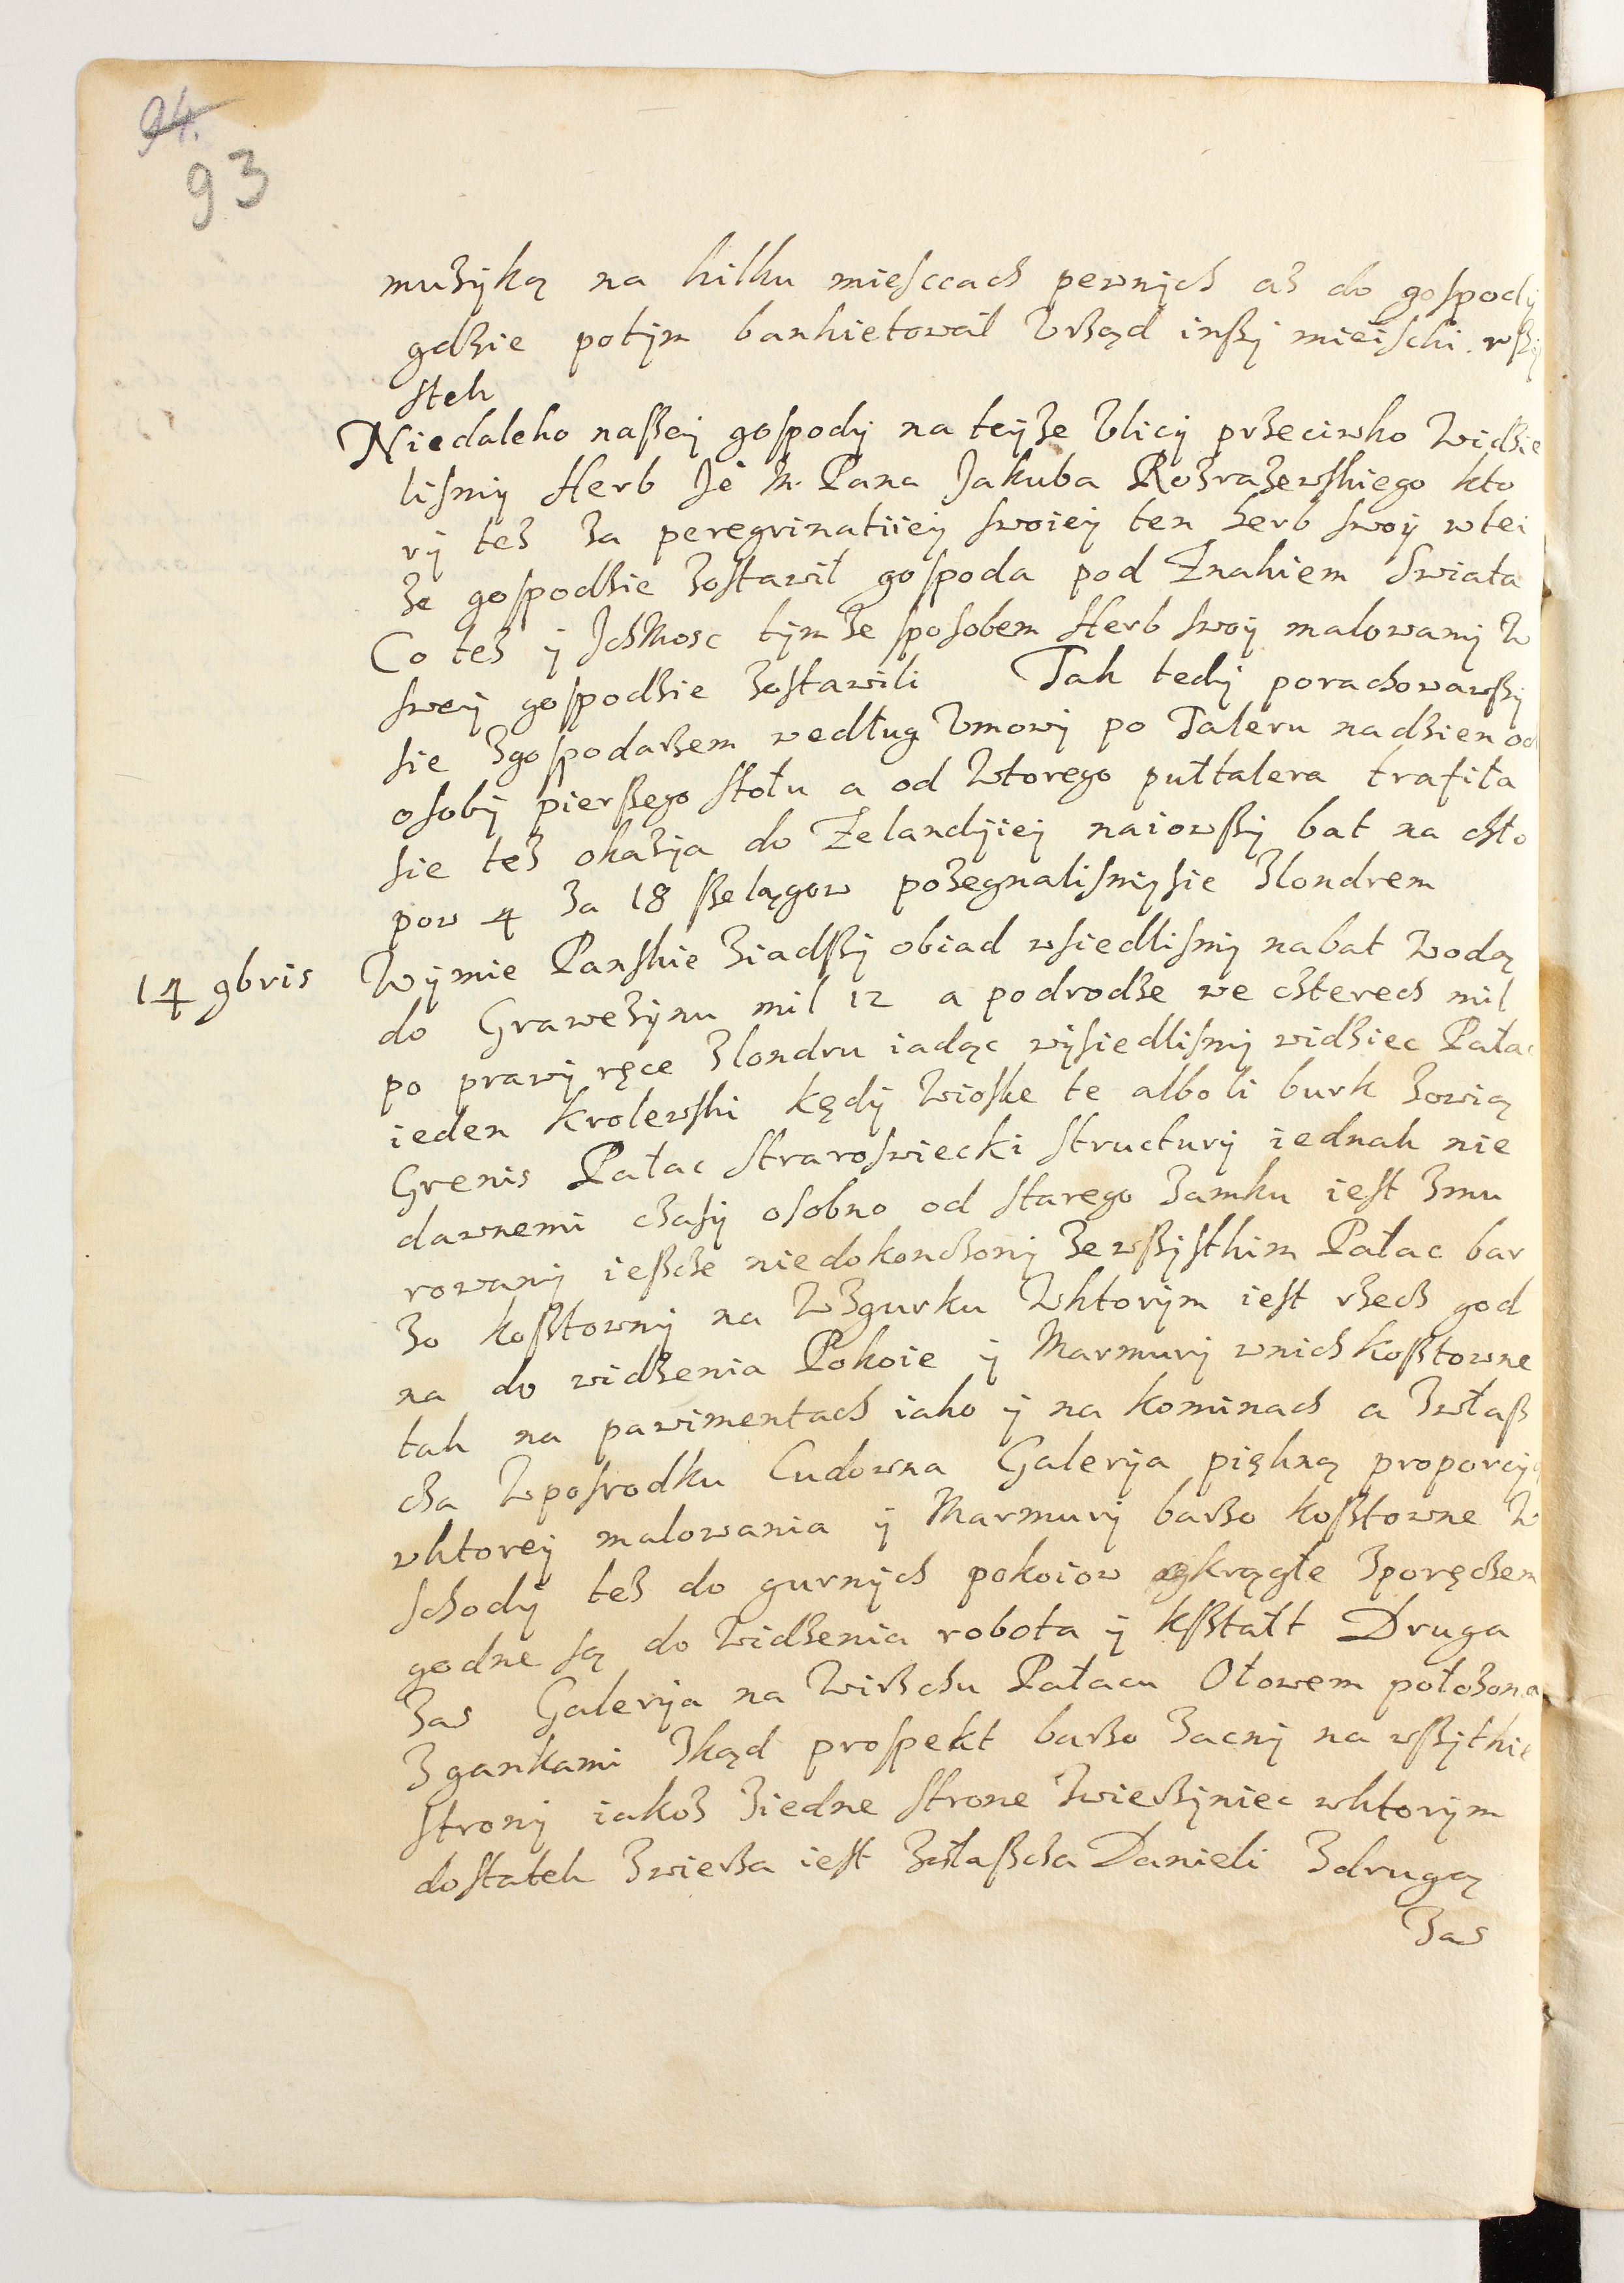 94.
93
muzyką na kilku miesccach pewnych az do gospody
gdzie potym bankietował Vrząd inszy mieiski. wszy
stek
Niedaleko naszey gospody na teyze Vlicy przeciwko Widzie
lismy Herb Je M. Pana Jakuba Rozrazewskiego kto
ry tez za peregrinatiiey swoiey ten herb swoy wtei
ze gospodzie zostawił gospoda pod Znakiem Swiata
Co tez y JchMosc tymze sposobem Herb swoy malowany W
swey gospodzie zostawili Tak tedy porachowawszy
sie zgospodarzem według Vmowy po Taleru nadzien od
osoby pierszego stołu a od Wtorego pułtalera trafiła
sie tez okazya do Zelandyiey naiowszy bat na chło
pow 4 za 18 szelągow pozegnalismysie zlondrem
14 9bris Wymie Panskie ziadszy obiad wsiedlismy nabat Wodą
do Grawezynu mil 12 a podrodze we czterech mil
po prawy ręce zlondru iadąc wysiedlismy widziec Pałac
ieden krolewski kędy Wioske te albo li burk zowią
Grenis Pałac straroswiecki structury iednak nie
dawnemi czasy osobno od starego zamku iest zmu
rowany ieszcze niedokonczony zewszystkim Pałac bar
zo kosztowny na Wzgurku Wktorym iest rzech god
na do widzenia Pokoie y Marmury wnich kosztowne
tak na pavimentach iako y na kominach a zwłasz
cza Wposrodku Cudowna Galerya piękną proporcyą
wktorey malowania y Marmury barzo kosztowne W
schody tez do gurnych pokoiow okrągłe zporęczem
godne są do Widzenia robota y kształt Druga
zas Galerya na Wirzchu Pałacu Ołowem położona
zgankami zkąd prospekt barzo zacny na wszytkie
strony iakoz ziedne strone zwierzyniec wktorym
dostatek zwierza iest zwłaszcza Danieli zdrugą
zas